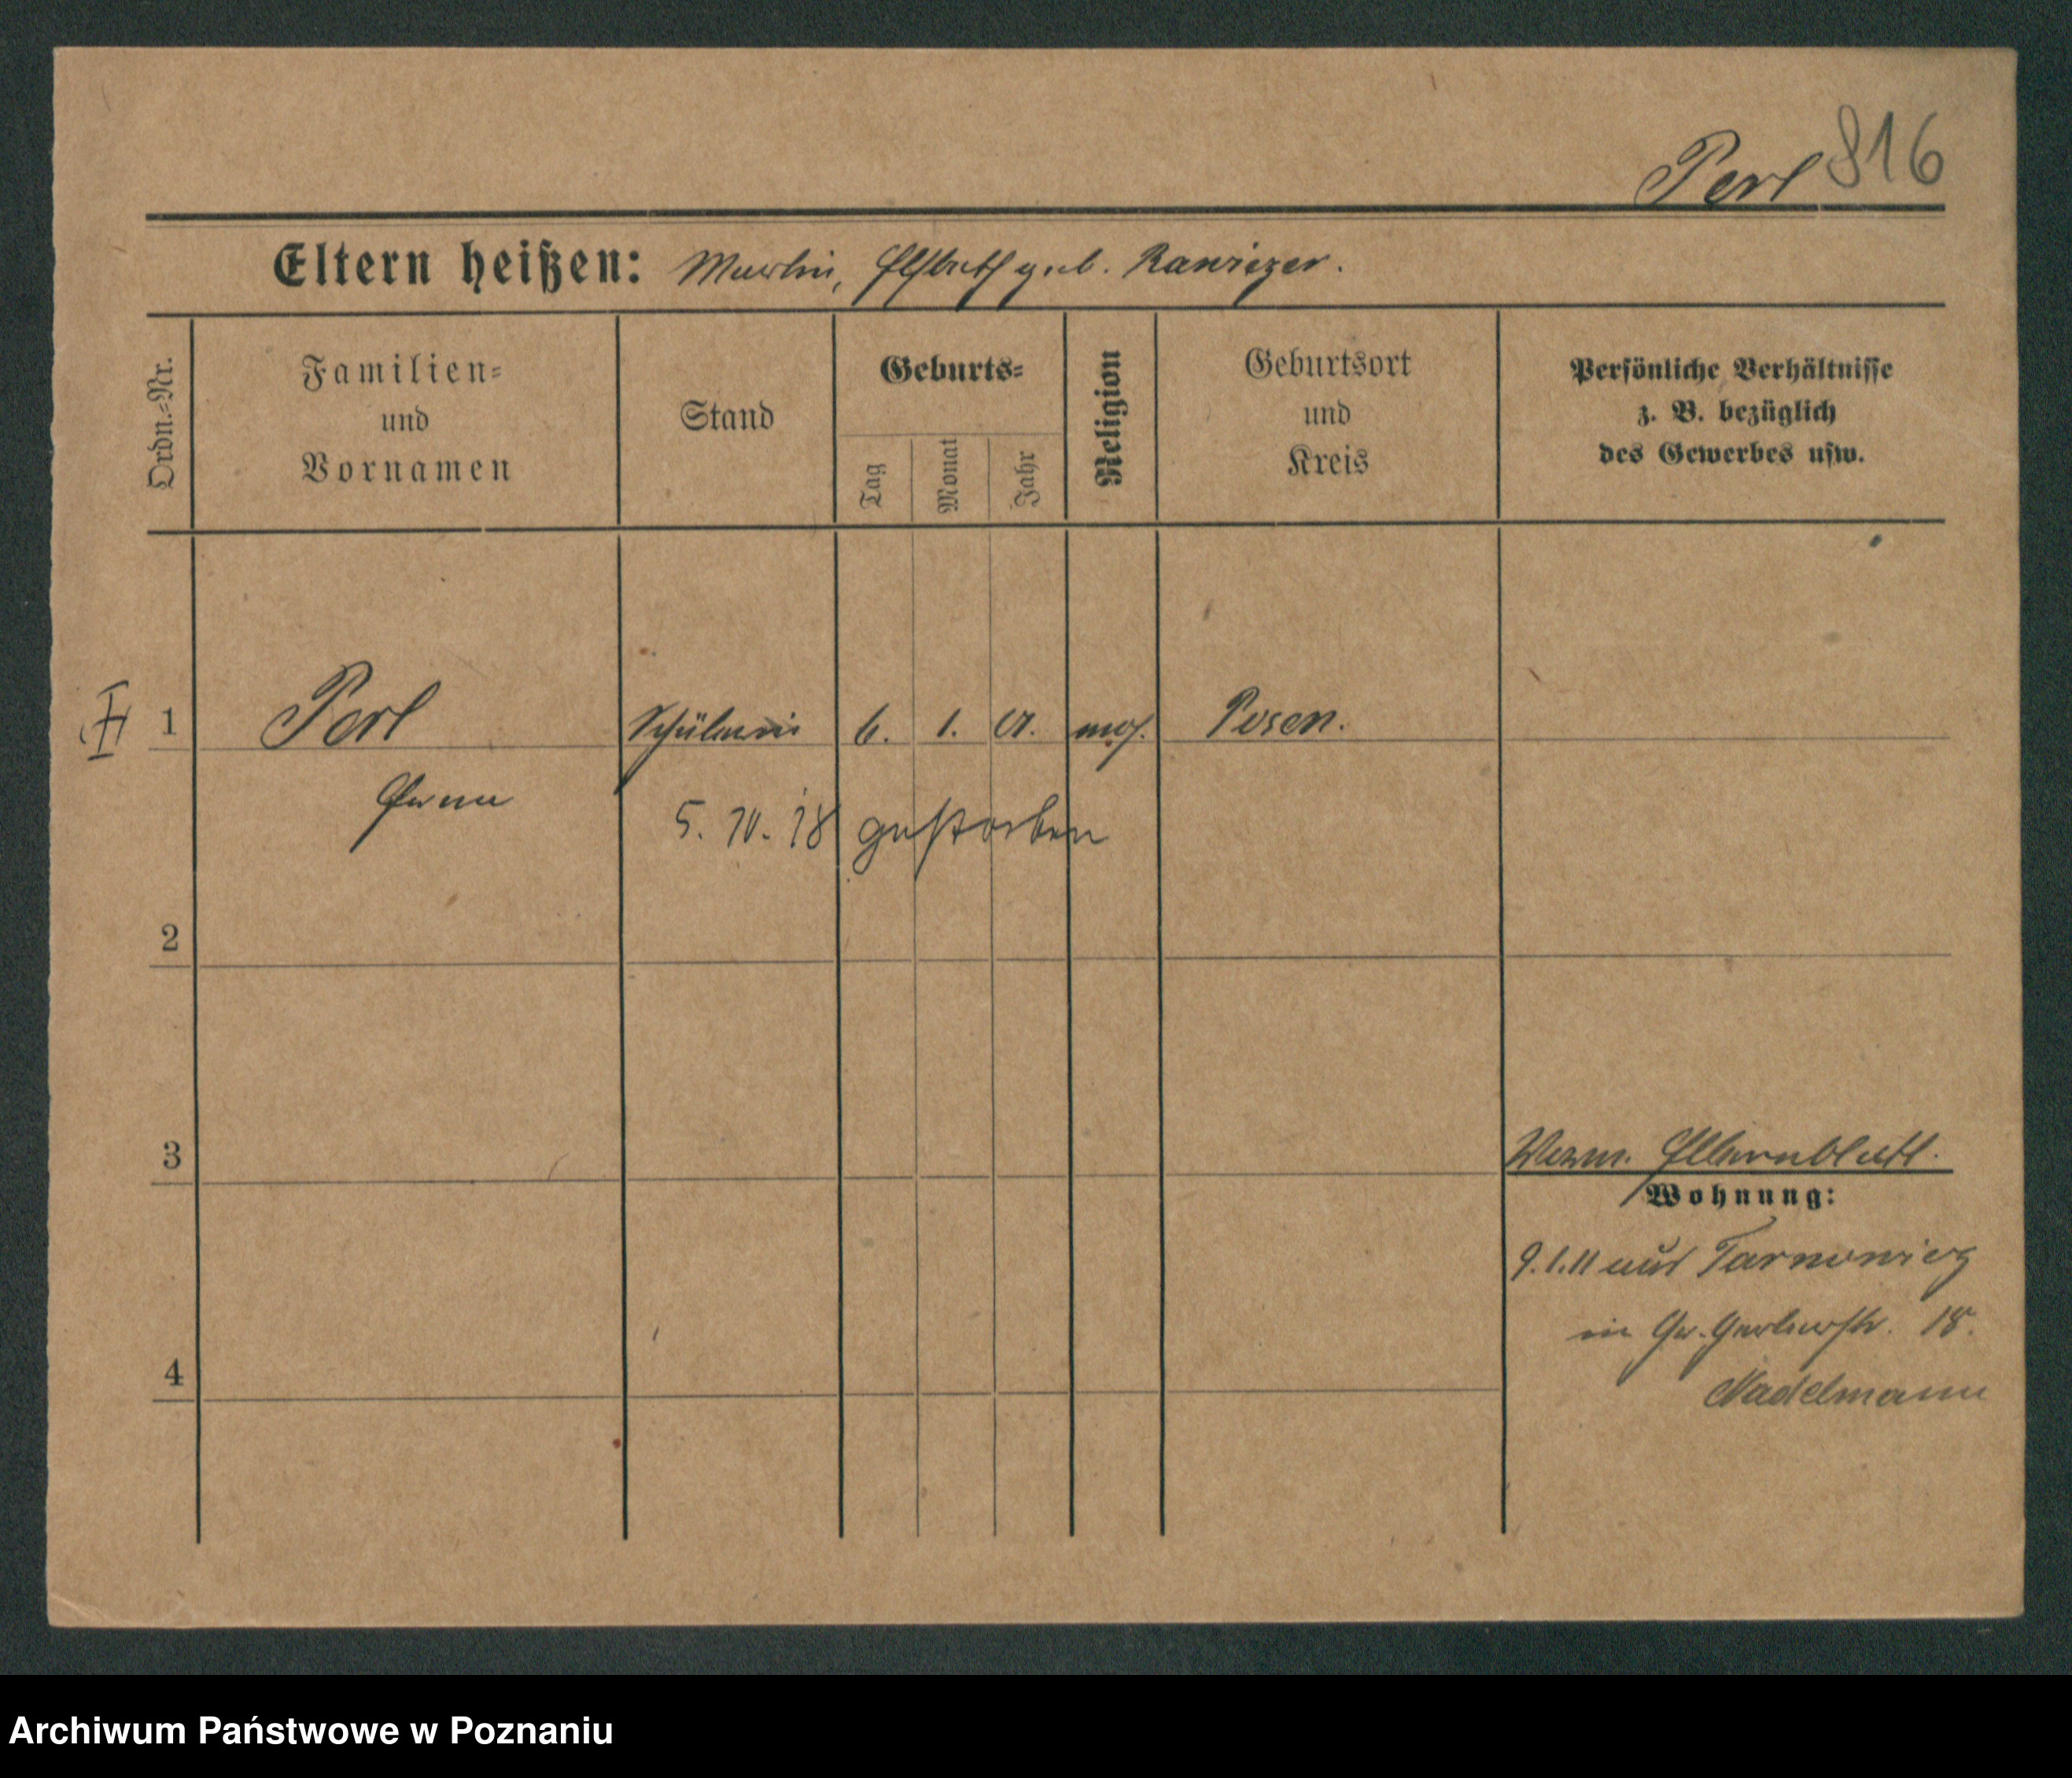 Perl 816
Eltern heißen: Martin, Elsbeth geb. Rawiczer.
Ordn.-Nr.
Familien-
und
Vornamen
Stand
Geburts-
Tag
Monat
Jahr
Religion
Geburtsort
und
Kreis
Persönliche Verhältnisse
z. B. bezüglich
des Gewerbes usw.
1 Perl Schülerin 6. 1. 01. mos. Posen.
5. 10. 18 gestorben
2
3
Verm. Elternblatt.
Wohnung:
9.1.11 aus Tarnowicz
in Gr. Gerberstr. 18.
4
Nadelmann
Archiwum Państwowe w Poznaniu